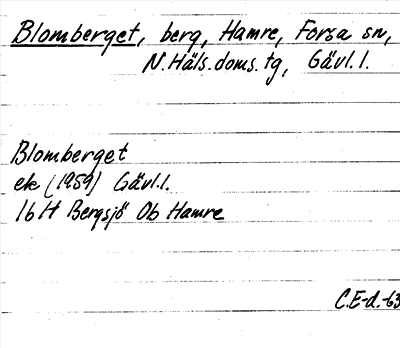 Blomberget, berg, Hamre, Forsa sn,
N.Häls.doms.tg, Gävl.l.
Blomberget
ek (1959) Gävl.l.
16H Bergsjö Ob Hamre
C.E-d.-63